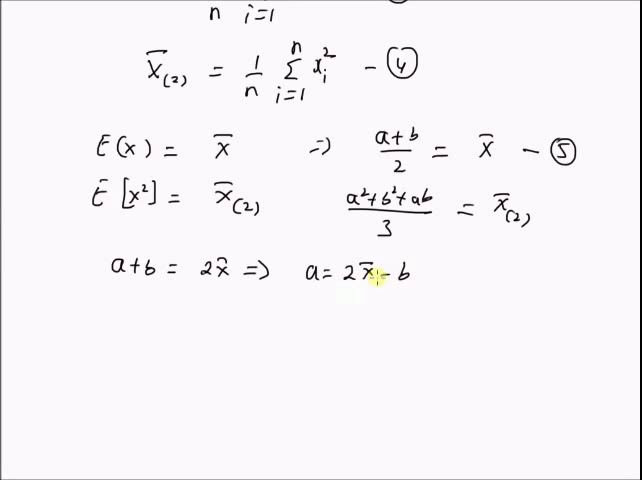 n i=1
x̄(2) = 1/n n∑i=1 xi² - ④
E(x) = x̄ => a+b/2 = x̄ - ⑤
E[x²] = x̄(2) a²+b²+ab/3 = x̄(2)
a+b = 2x̄ => a = 2x̄ - b